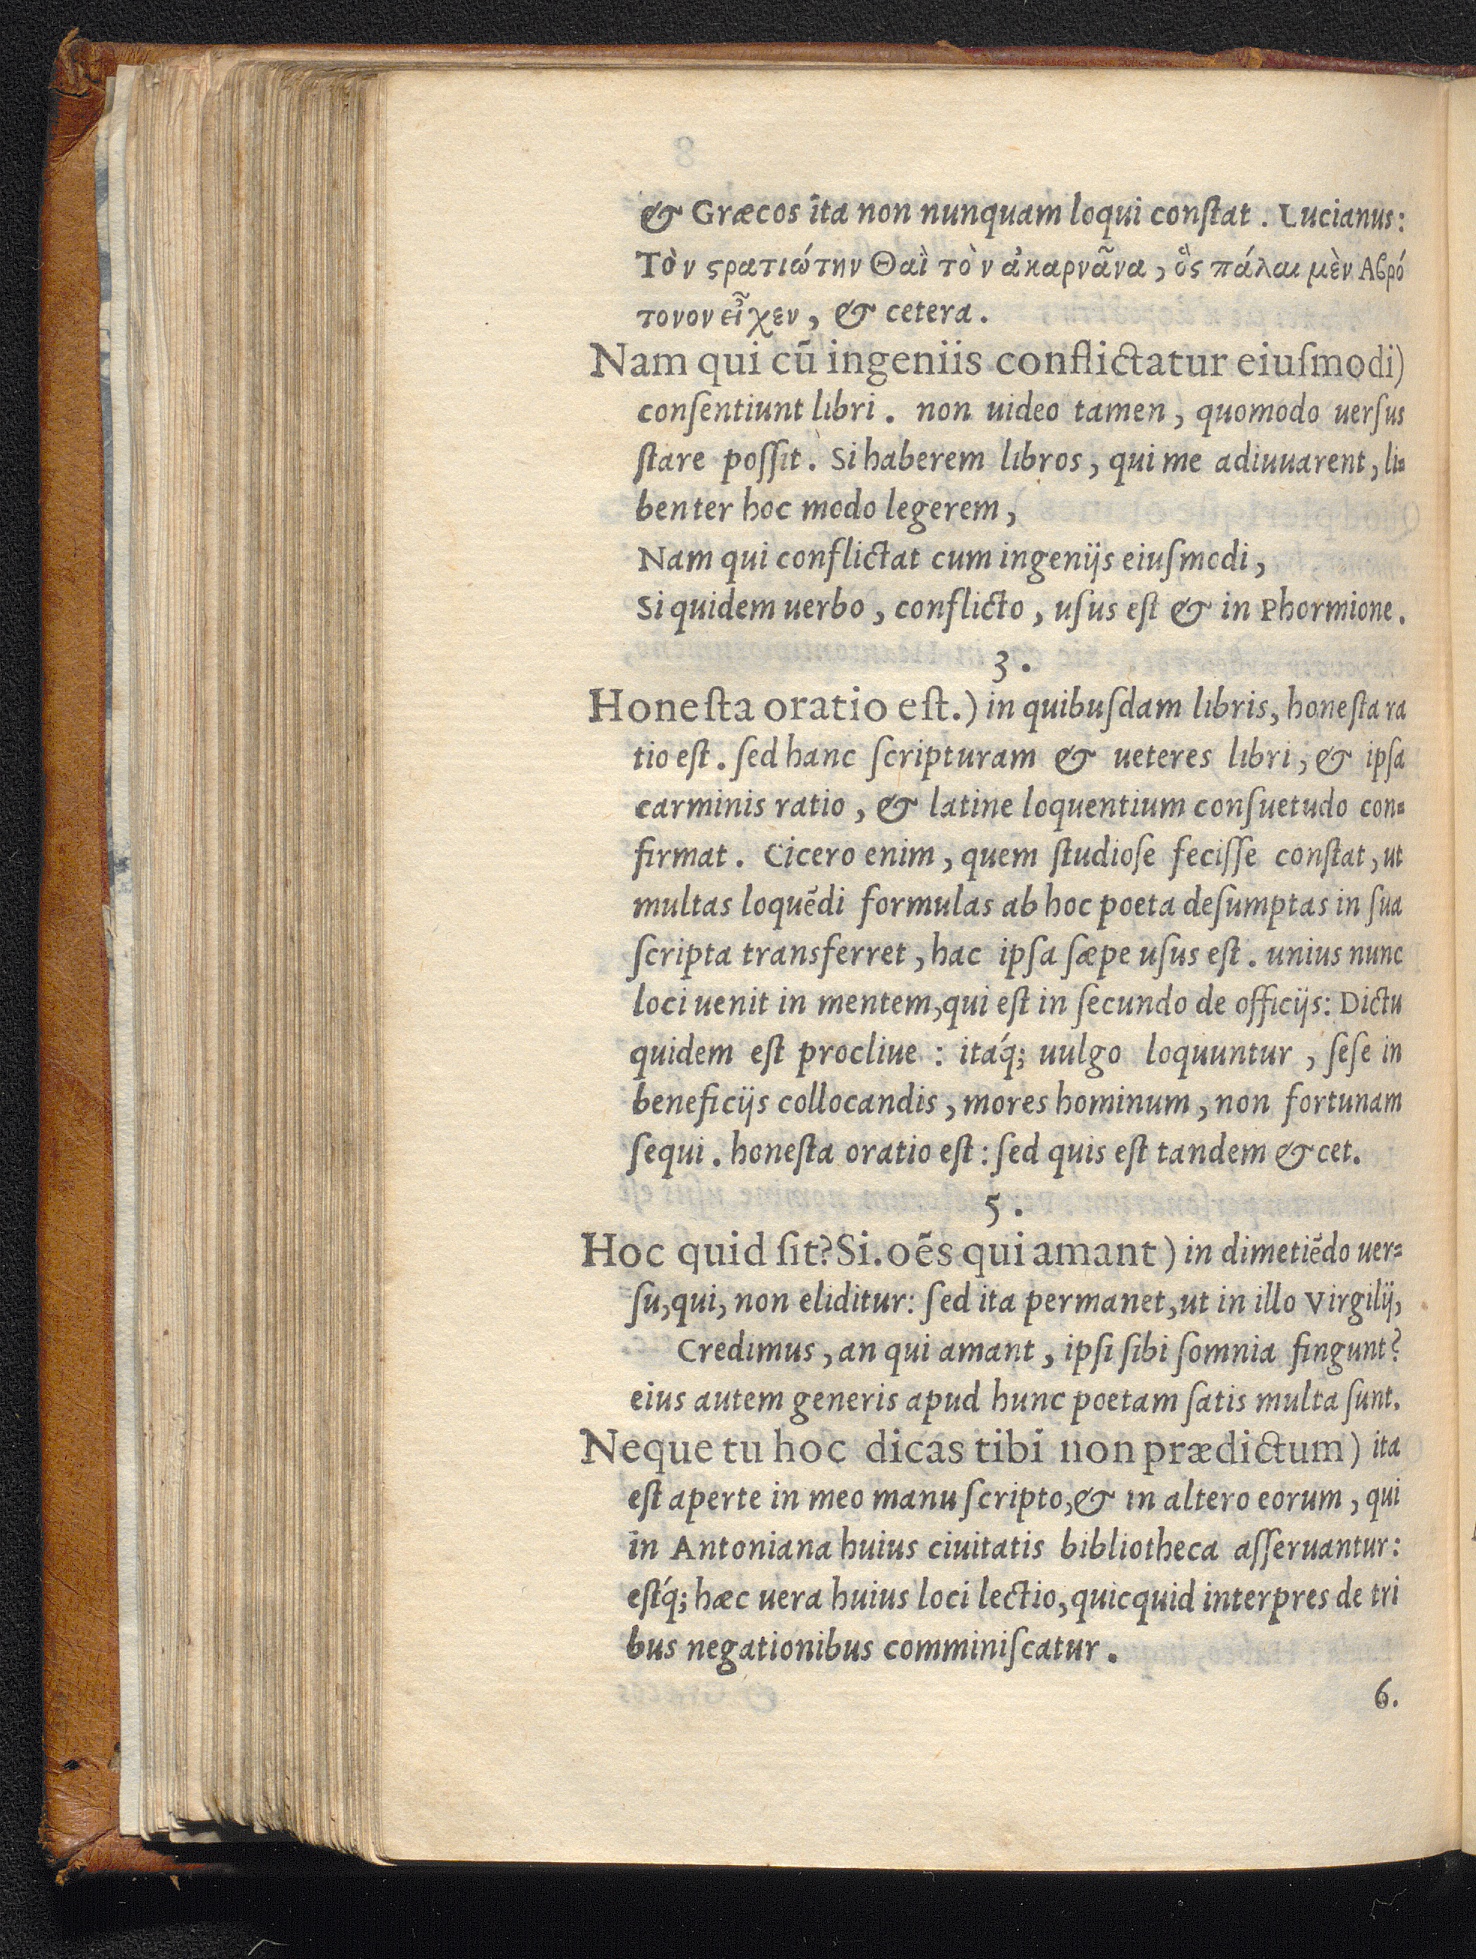 & Græcos ita non nunquam loqui conſtat. Lucianus:
Τὸν ϛρατιώτην Θαῒ τὸν ἀκαρνᾶνα, ὃς πάλαι μὲν Αβρό
τονον εἶχεν, & cetera.
Nam qui cū ingeniis conflictatur eiuſmodi)
conſentiunt libri. non uideo tamen, quomodo uerſus
ſtare poſſit. Si haberem libros, qui me adiuuarent, li=
benter hoc modo legerem,
Nam qui conflictat cum ingenijs eiuſmodi,
Si quidem uerbo, conflicto, uſus eſt & in Phormione.
3.
Honeſta oratio eſt.) in quibuſdam libris, honeſta ra
tio eſt. ſed hanc ſcripturam & ueteres libri, & ipſa
carminis ratio, & latine loquentium conſuetudo con=
firmat. Cicero enim, quem ſtudioſe feciſſe conſtat, ut
multas loquēdi formulas ab hoc poeta deſumptas in ſua
ſcripta transferret, hac ipſa ſæpe uſus eſt. unius nunc
loci uenit in mentem, qui eſt in ſecundo de officijs: Dictu
quidem eſt procliue: itáq; uulgo loquuntur, ſeſe in
beneficijs collocandis, mores hominum, non fortunam
ſequi. honeſta oratio eſt: ſed quis eſt tandem & cet.
5.
Hoc quid ſit? Si. oēs qui amant) in dimetiēdo uer=
ſu, qui, non eliditur: ſed ita permanet, ut in illo Virgilij,
Credimus, an qui amant, ipſi ſibi ſomnia fingunt?
eius autem generis apud hunc poetam ſatis multa ſunt.
Neque tu hoc dicas tibi non prædictum) ita
eſt aperte in meo manu ſcripto, & in altero eorum, qui
in Antoniana huius ciuitatis bibliotheca aſſeruantur:
eſtq́; hæc uera huius loci lectio, quicquid interpres de tri
bus negationibus comminiſcatur.
6.